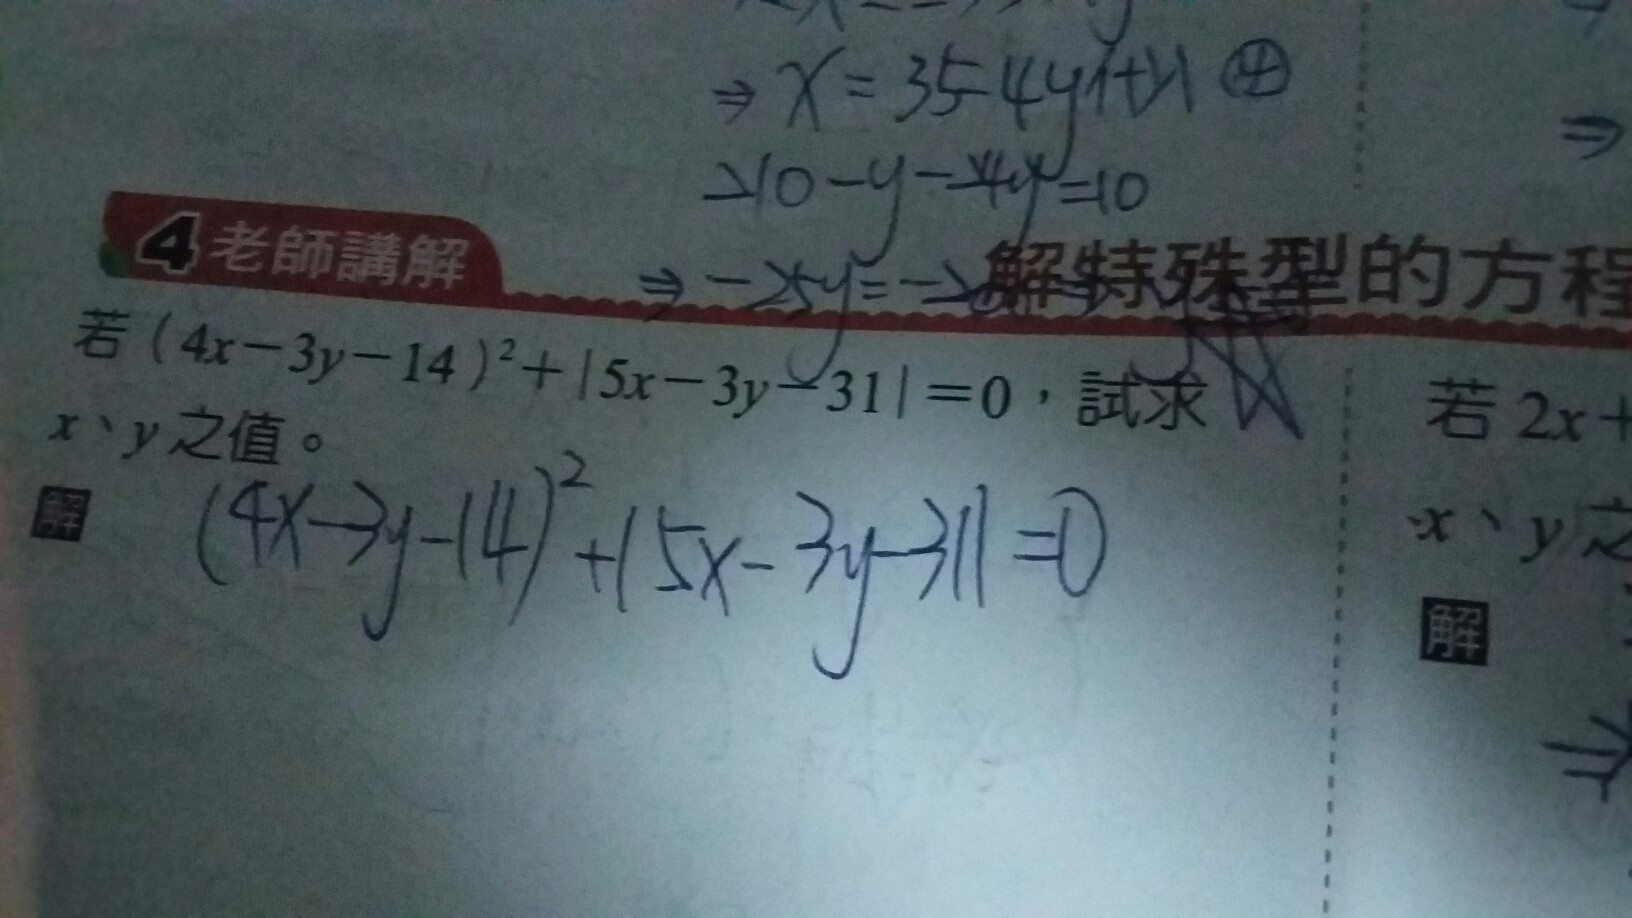 ⇒ x = 35-4y
10-y-4y=10
⇒ -25y=-
4 老師講解
解特殊型的方程
若 (4x-3y-14)²+|5x-3y-31|=0，試求
x、y之值。
解 (4x-3y-14)²+|5x-3y-31|=0
若 2x+
x、y之
解
⇒